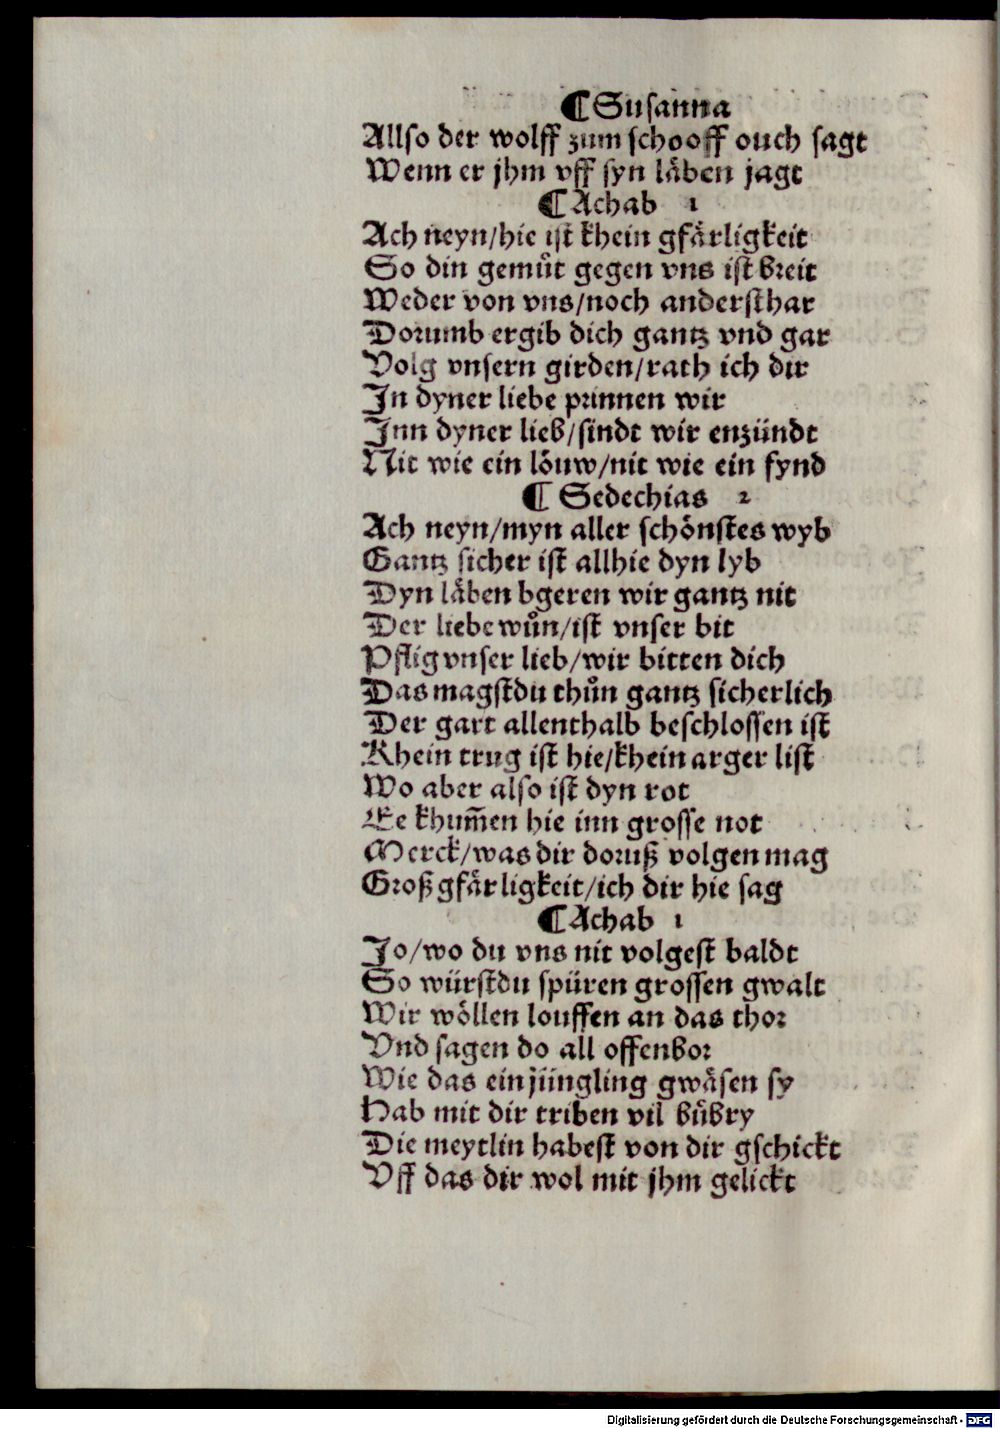 ¶ Susanna
Allso der wolff zum schooff ouch sagt
Wenn er jhm vff syn läben jagt
¶ Achab 1
Ach neyn/hie ist khein gfärligkeit
So din gemuͤt gegen vns ist breit
Weder von vns/noch andersthar
Dorumb ergib dich gantz vnd gar
Volg vnsern girden/rath ich dir
In dyner liebe prinnen wir
Inn dyner lieb/sindt wir enzündt
Nit wie ein löuw/nit wie ein fynd
¶ Sedechias 2
Ach neyn/myn aller schönstes wyb
Gantz sicher ist allhie dyn lyb
Dyn läben bgeren wir gantz nit
Der liebe wuͦn/ist vnser bit
Pflig vnser lieb/wir bitten dich
Das magstdu thuͦn gantz sicherlich
Der gart allenthalb beschlossen ist
Khein trug ist hie/khein arger list
Wo aber also ist dyn rot
Ee khum̃en hie inn grosse not
Merck/was dir doruß volgen mag
Groß gfärligkeit/ich dir hie sag
¶ Achab 1
Jo/wo du vns nit volgest baldt
So würstdu spüren grossen gwalt
Wir wöllen louffen an das thor
Vnd sagen do all offenbor
Wie das ein jüngling gwäsen sy
Hab mit dir triben vil buͤbry
Die meytlin habest von dir gschickt
Vff das dir wol mit jhm gelickt
Digitalisierung gefördert durch die Deutsche Forschungsgemeinschaft - DFG